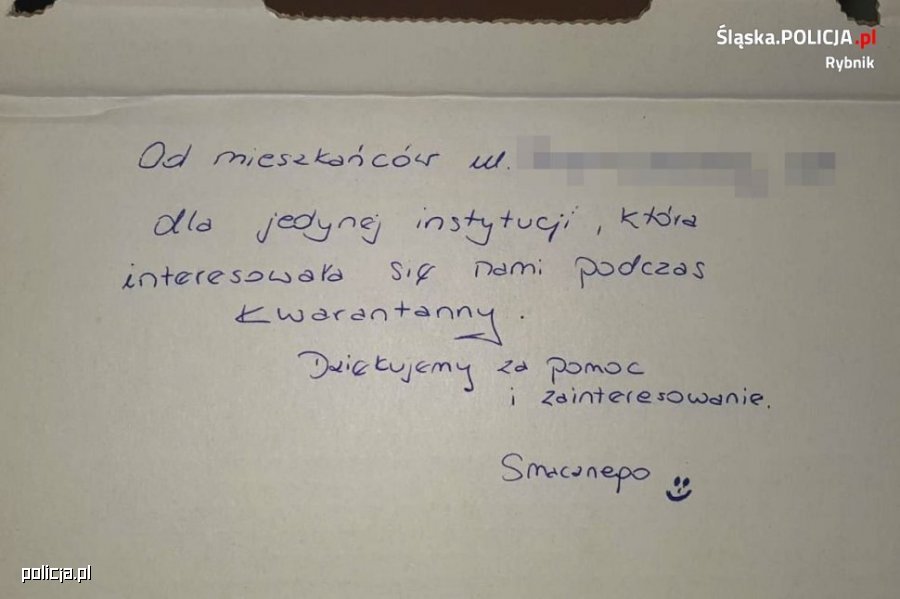 Śląska.POLICJA.pl
Rybnik
Od mieszkańców ul.
dla jedynej instytucji, która
interesowała się nami podczas
kwarantanny.
Dziękujemy za pomoc
i zainteresowanie.
Smacznego
policja.pl